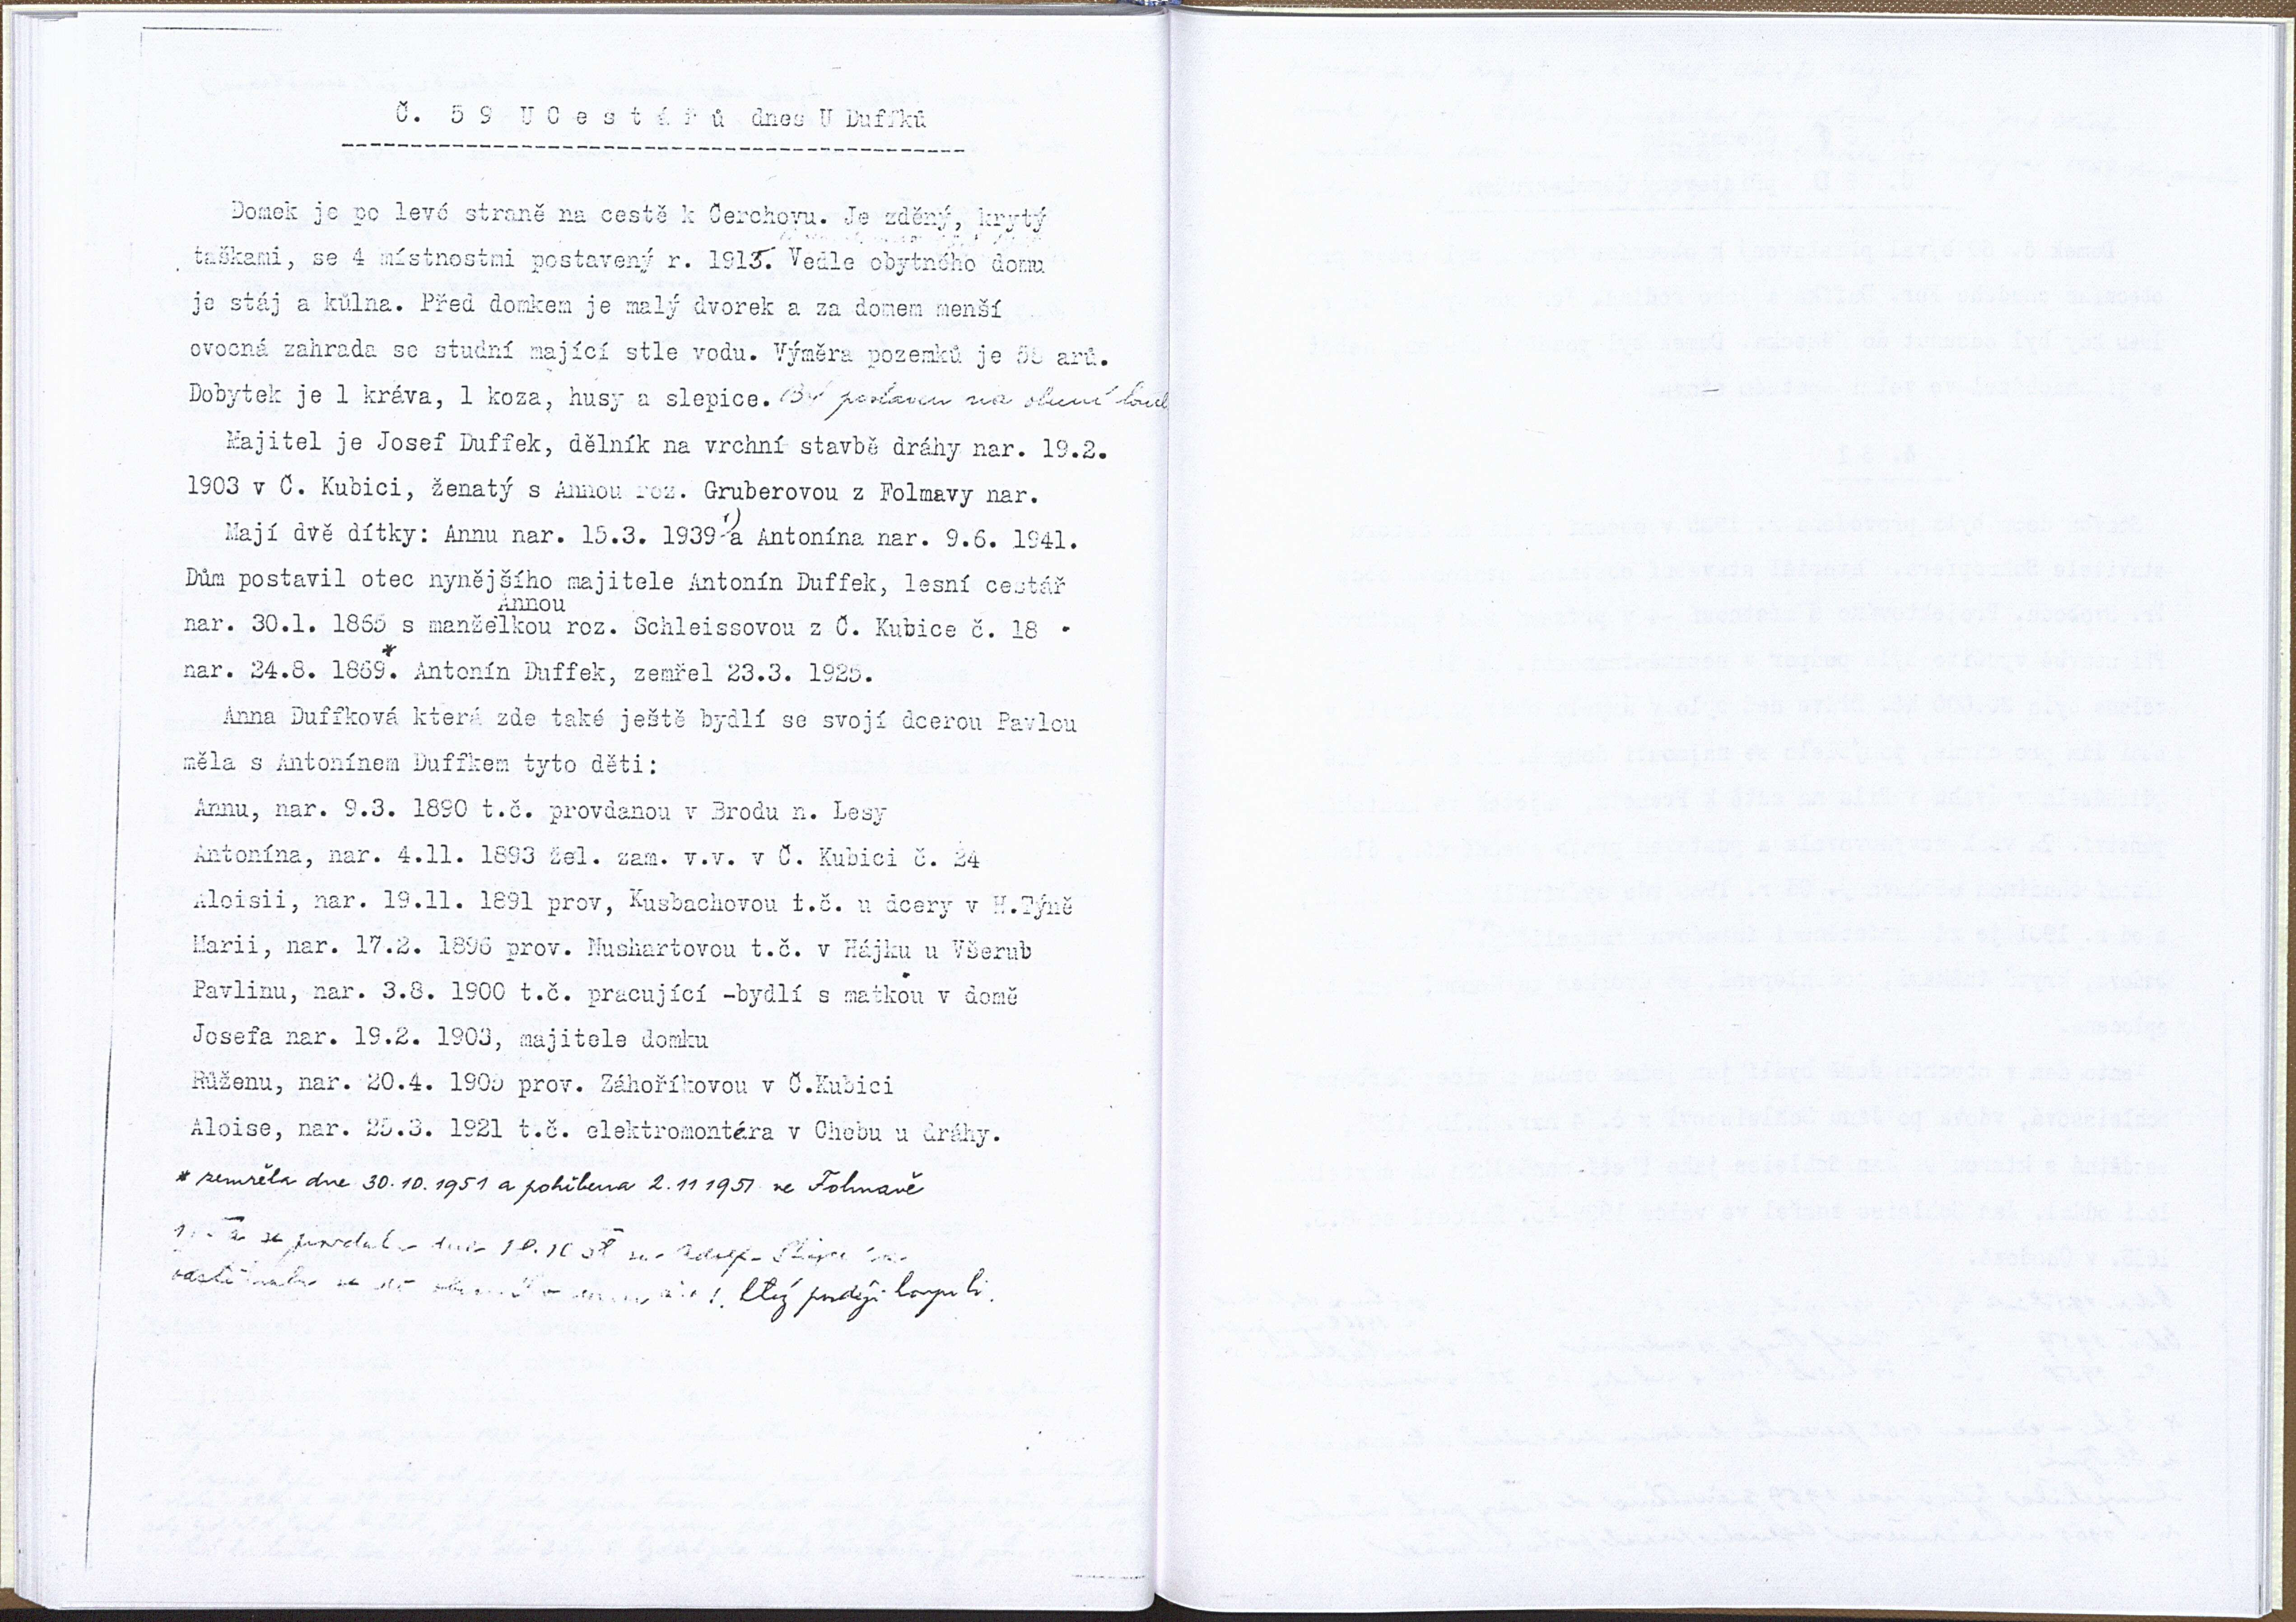 Č. 5 9 U C e s t á ř ů dnes U Duffků
Domek je po levé straně na cestě k Čerchovu. Je zděný, krytý
taškami, se 4 místnostmi postavený r. 1915. Vedle obytného domu
je stáj a kůlna. Před domkem je malý dvorek a za domem menší
ovocná zahrada se studní mající stle vodu. Výměra pozemků je 58 arů.
Dobytek je 1 kráva, 1 koza, husy a slepice. postaven na
Majitel je Josef Duffek, dělník na vrchní stavbě dráhy nar. 19.2.
1903 v Č. Kubici, ženatý s Annou roz. Gruberovou z Folmavy nar.
Mají dvě dítky: Annu nar. 15.3. 1939 1) a Antonína nar. 9.6. 1941.
Dům postavil otec nynějšího majitele Antonín Duffek, lesní cestář
Annou
nar. 30.1. 1865 s manželkou roz. Schleissovou z Č. Kubice č. 18
nar. 24.8. 1869*. Antonín Duffek, zemřel 23.3. 1925.
Anna Duffková která zde také ještě bydlí se svojí dcerou Pavlou
měla s Antonínem Duffkem tyto děti:
Annu, nar. 9.3. 1890 t.č. provdanou v Brodu n. Lesy
Antonína, nar. 4.11. 1893 žel. zam. v.v. v Č. Kubici č. 24
Aloisii, nar. 19.11. 1891 prov, Kusbachovou t.č. u dcery v H.Týně
Marii, nar. 17.2. 1896 prov. Mushartovou t.č. v Hájku u Všerub
Pavlinu, nar. 3.8. 1900 t.č. pracující -bydlí s matkou v domě
Josefa nar. 19.2. 1903, majitele domku
Růženu, nar. 20.4. 1905 prov. Záhoříkovou v Č.Kubici
Aloise, nar. 25.3. 1921 t.č. elektromontéra v Chebu u dráhy.
* zemřela dne 30.10.1951 a pohřbena 2.11 1951 ve Folmavě
se provdala
který později koupili.